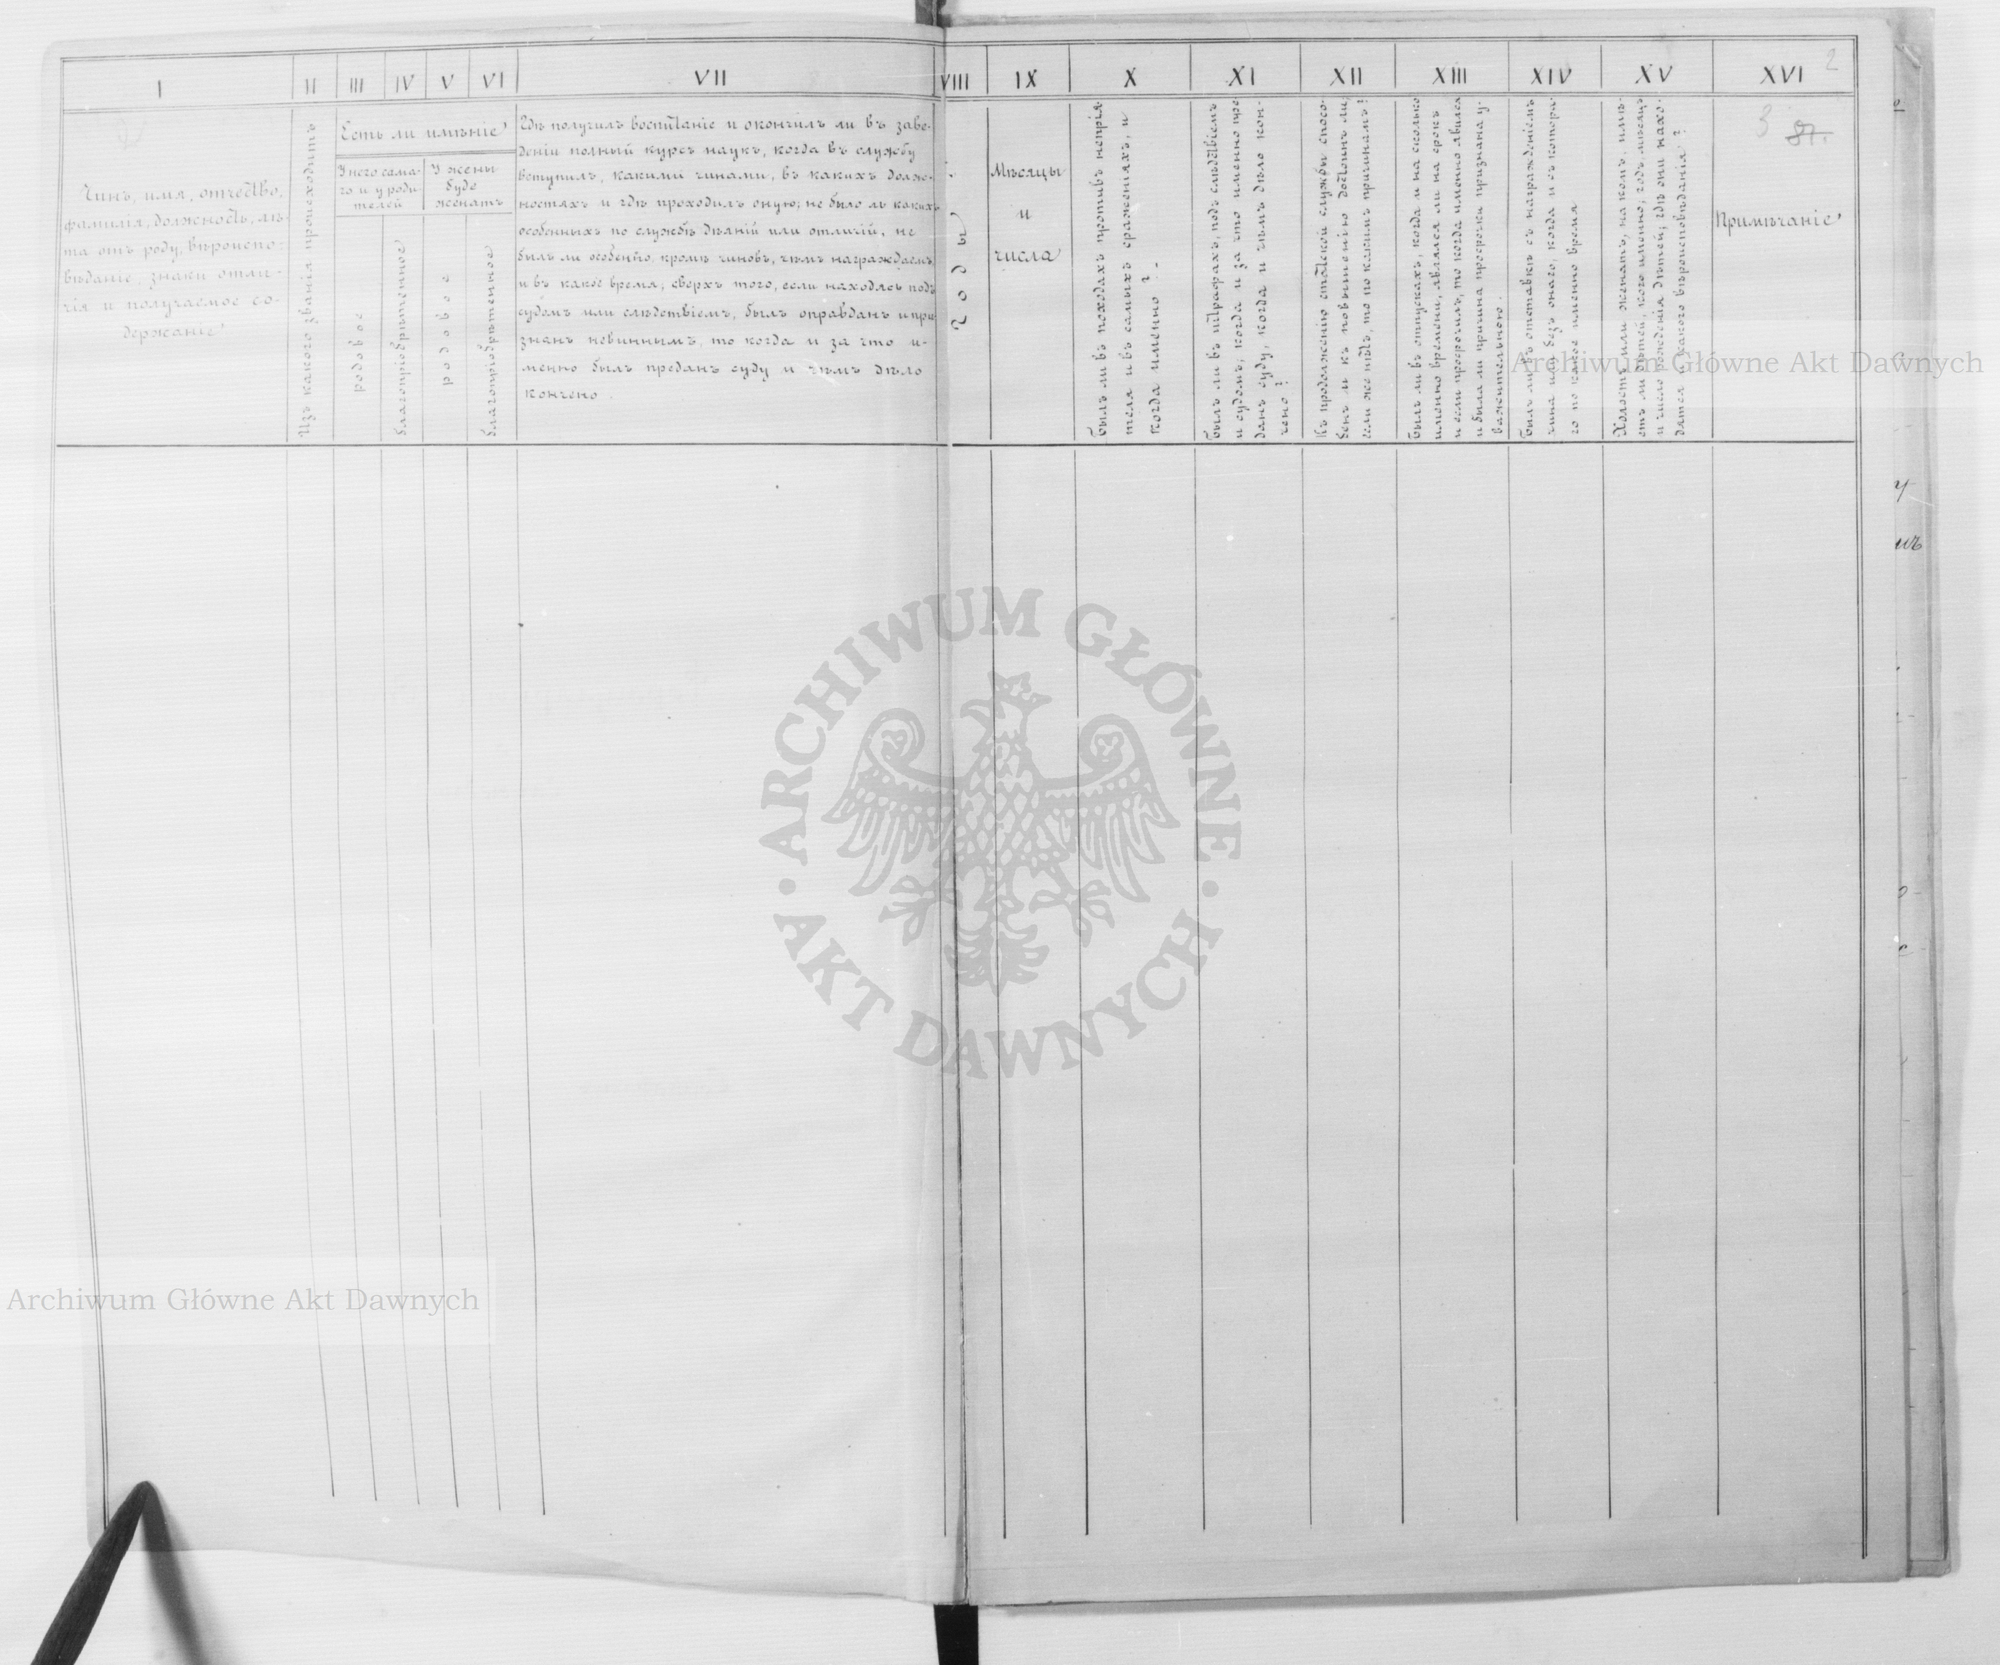 I
II
III
IV
V
VI
VII
VIII
IX
X
XI
XII
XIII
XIV
XV
XVI
2
Чинъ, имя, отчество,
фамилія, должность, лѣ-
та отъ роду, вѣроиспо-
вѣданіе, знаки отли-
чія и получаемое со-
держаніе
Изъ какого званія происходитъ
Есть ли имѣніе
У него сама-
го и у роди-
телей
У жены
буде
женатъ
родовое
благопріобрѣтенное
родовое
благопріобрѣтенное
Гдѣ получилъ воспитаніе и окончилъ ли въ заве-
деніи полный курсъ наукъ, когда въ службу
вступилъ, какими чинами, въ какихъ долж-
ностяхъ и гдѣ проходилъ оную; не было ли какихъ
особенныхъ по службѣ дѣяній или отличій, не
былъ ли особенно, кромѣ чиновъ, чѣмъ награждаемъ
и въ какое время; сверхъ того, если находясь подъ
судомъ или слѣдствіемъ, былъ оправданъ и при-
знанъ невиннымъ, то когда и за что и-
менно былъ преданъ суду и чѣмъ дѣло
кончено.
Годы
Мѣсяцы
и
числа
Былъ ли въ походахъ противъ непрія-
теля и въ самыхъ сраженіяхъ, и
когда именно?
Былъ ли въ штрафахъ, подъ слѣдствіемъ
и судомъ; когда и за что именно пре-
данъ суду, когда и чѣмъ дѣло кон-
чено?
Къ продолженію статской службы спосо-
бенъ и къ повышенію достоинъ ли,
если же нѣтъ, то по какимъ причинамъ?
Былъ ли въ отпускахъ, когда и на сколько
именно времени, являлся ли на срокъ
и если просрочилъ, то когда именно явился
и была ли причина просрочки признана у-
важительною.
Былъ ли въ отставкѣ съ награжденіемъ
чина или безъ онаго, когда и съ котора-
го по какое именно время
Холостъ или женатъ, на комъ, имѣ-
етъ ли дѣтей, кого именно; годъ, мѣсяцъ
и число рожденія дѣтей; гдѣ они нахо-
дятся и какого вѣроисповѣданія?
3
87.
Примѣчаніе
Archiwum Główne Akt Dawnych
ARCHIWUM GŁÓWNE
AKT DAWNYCH
Archiwum Główne Akt Dawnych